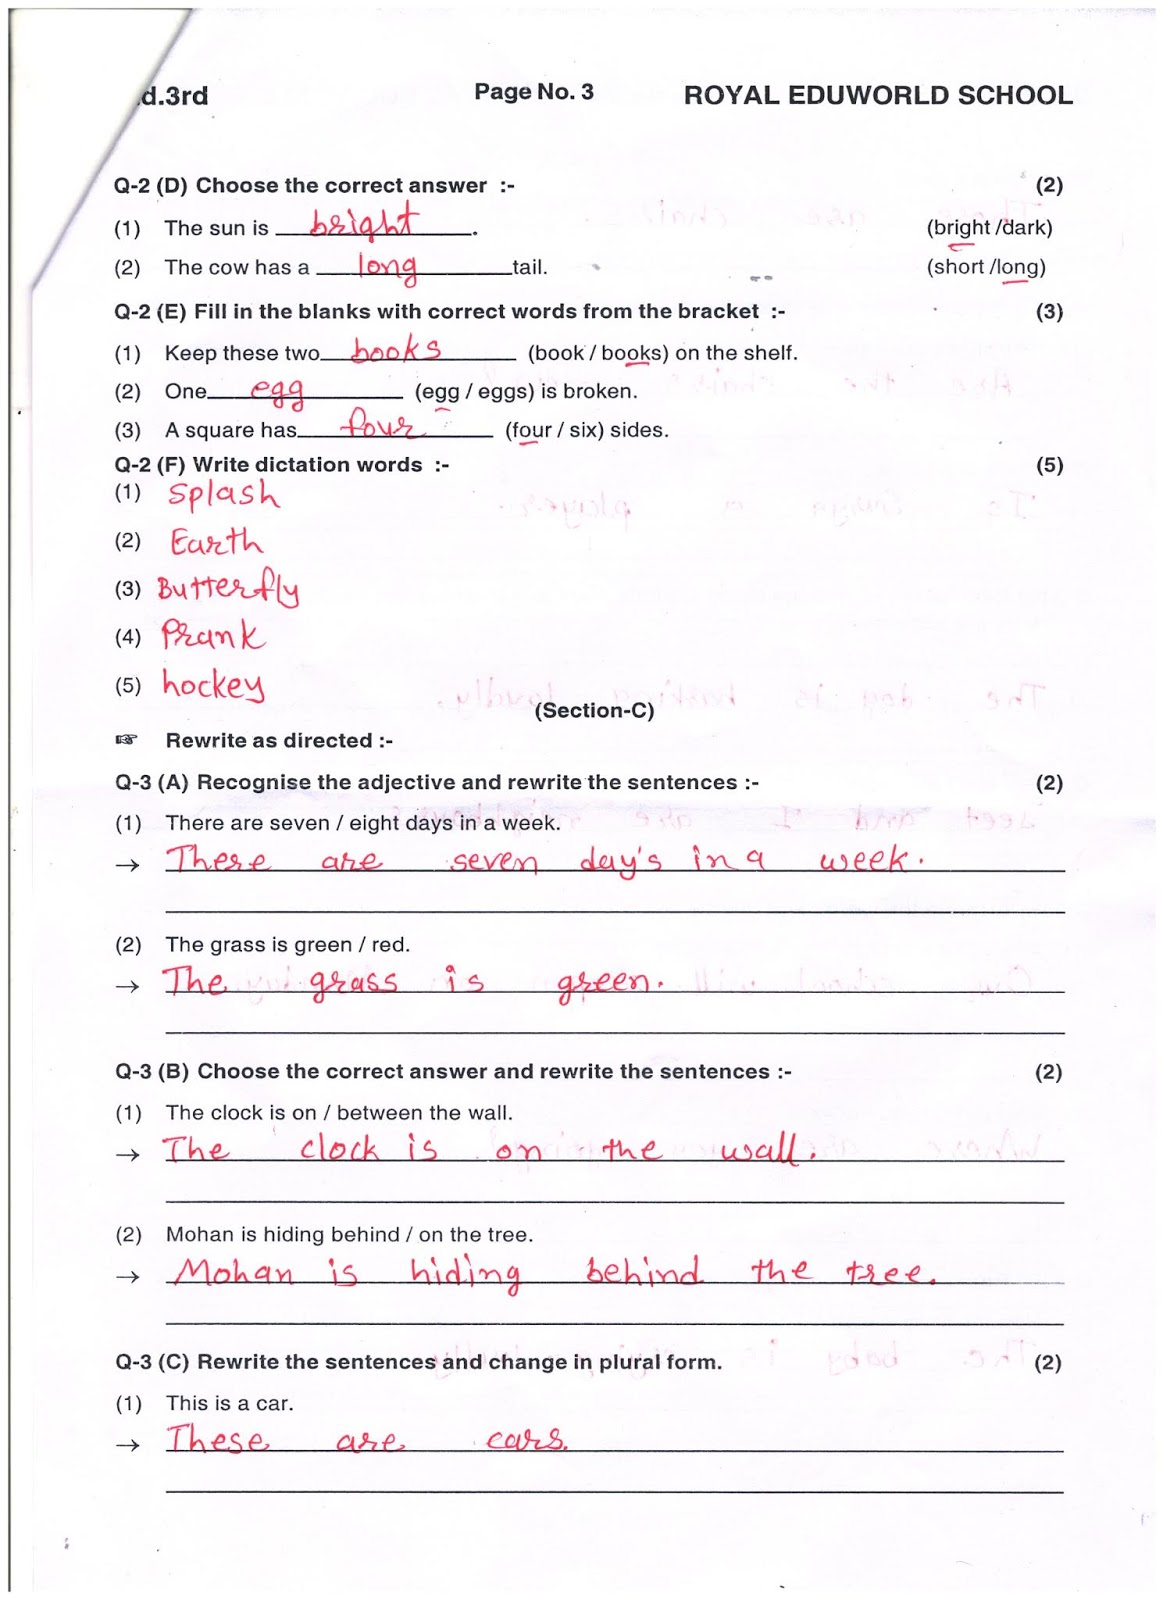 d.3rd Page No. 3 ROYAL EDUWORLD SCHOOL
Q-2 (D) Choose the correct answer :- (2)
(1) The sun is bright. (bright /dark)
(2) The cow has a long tail. (short /long)
Q-2 (E) Fill in the blanks with correct words from the bracket :- (3)
(1) Keep these two books (book / books) on the shelf.
(2) One egg (egg / eggs) is broken.
(3) A square has four (four / six) sides.
Q-2 (F) Write dictation words :- (5)
(1) splash
(2) Earth
(3) Butterfly
(4) Prank
(5) hockey
(Section-C)
☞ Rewrite as directed :-
Q-3 (A) Recognise the adjective and rewrite the sentences :- (2)
(1) There are seven / eight days in a week.
→ There are seven day's in a week.
(2) The grass is green / red.
→ The grass is green.
Q-3 (B) Choose the correct answer and rewrite the sentences :- (2)
(1) The clock is on / between the wall.
→ The clock is on the wall.
(2) Mohan is hiding behind / on the tree.
→ Mohan is hiding behind the tree.
Q-3 (C) Rewrite the sentences and change in plural form. (2)
(1) This is a car.
→ These are cars.